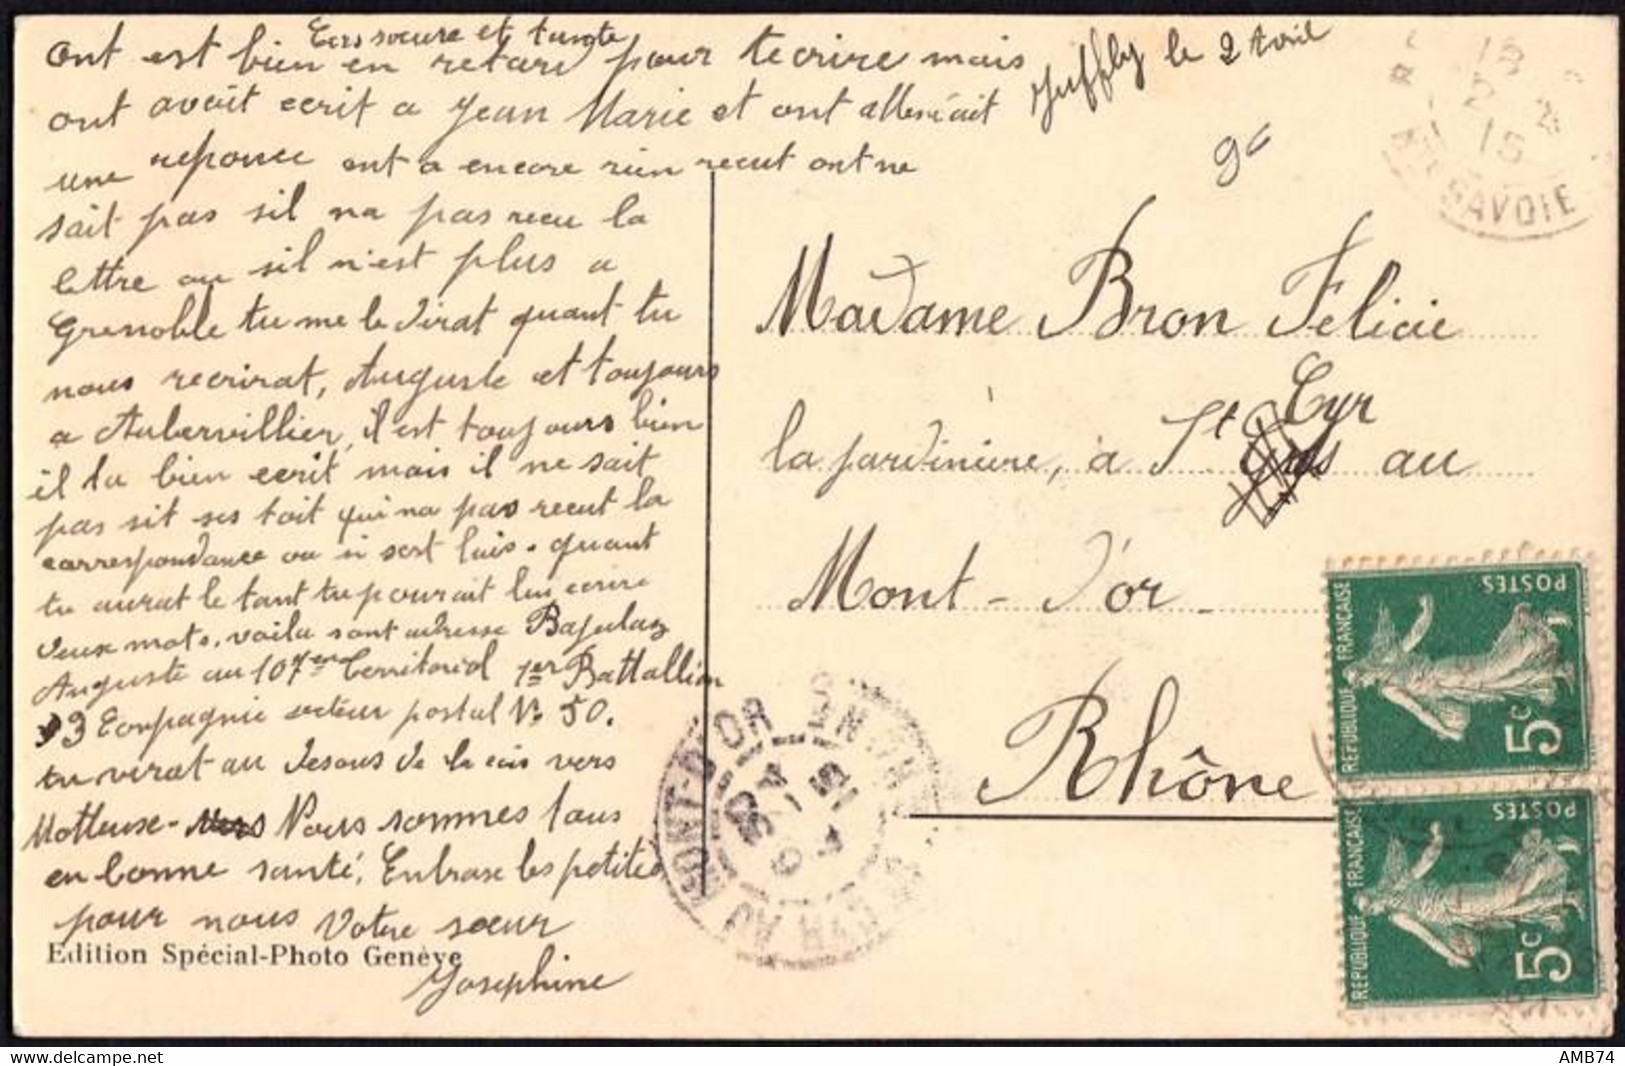 Juffly le 2 Avril
Cers soeure et tante
Ont est bien en retard pour tecrire mais
ont avait ecrit a Jean Marie et ont
une reponce ont a encore rien recut ont ne
sait pas sil na pas recu la
lettre ou sil n'est plus a
Grenoble tu me le dirat quant tu
nous recrirat, Auguste et toujours
a Aubervillier, il est toujours bien
il la bien ecrit mais il ne sait
pas sit ses toit qui na pas recut la
correspondance ou si sest luis. quant
tu aurat le tant tu pourait lui ecrire
deux mots, voila sont adresse Bajulaz
Auguste au 107em Territorial 1er Battallion
3 Compagnie secteur postal No 50.
tu verat au desous de la cais vers
Motteuse- Nous sommes tous
en bonne santé, Enbrase les petites
pour nous Votre soeur
Josephine
Edition Spécial-Photo Genève
Madame Bron Félicie
la jardinière, à St Cyr au
Mont-d'or
Rhône
SAVOIE
MONT-D'OR
REPUBLIQUE FRANÇAISE
POSTES
5c
REPUBLIQUE FRANÇAISE
POSTES
5c
AMB74